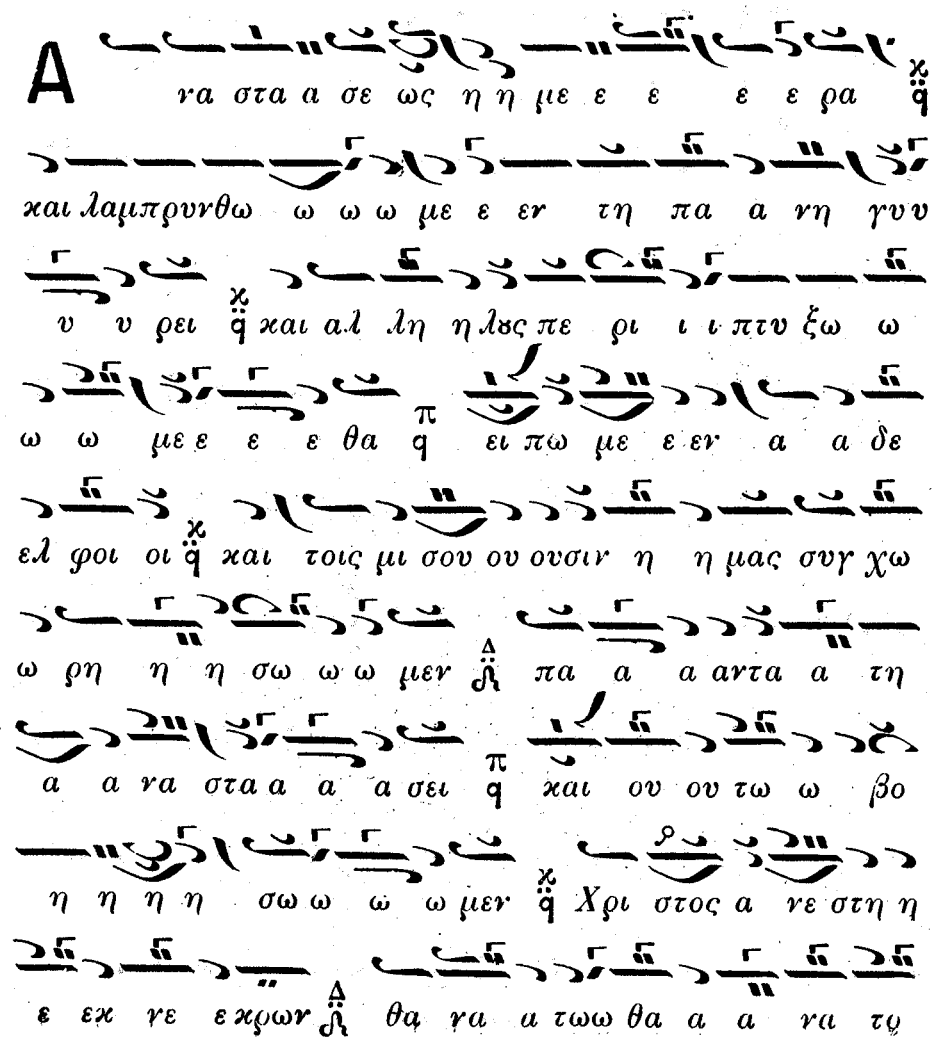 Α να στα α σε ως η η με ε ε ε ε ρα
και λαμπρυνθω ω ω ω με ε εν τη πα α νη γυ υ
υ υ ρει και αλ λη η λȣς πε ρι ι ι πτυ ξω ω
ω ω με ε ε ε θα ει πω με ε εν α α δε
ελ φοι οι και τοις μι σου ου ουσιν η η μας συγ χω
ω ρη η η σω ω ω μεν πα α α αντα α τη
α α να στα α α α σει και ου ου τω ω βο
η η η η σω ω ω ω μεν Χρι στος α νε στη η
ε εκ νε ε κρων θα να α τωω θα α α να το